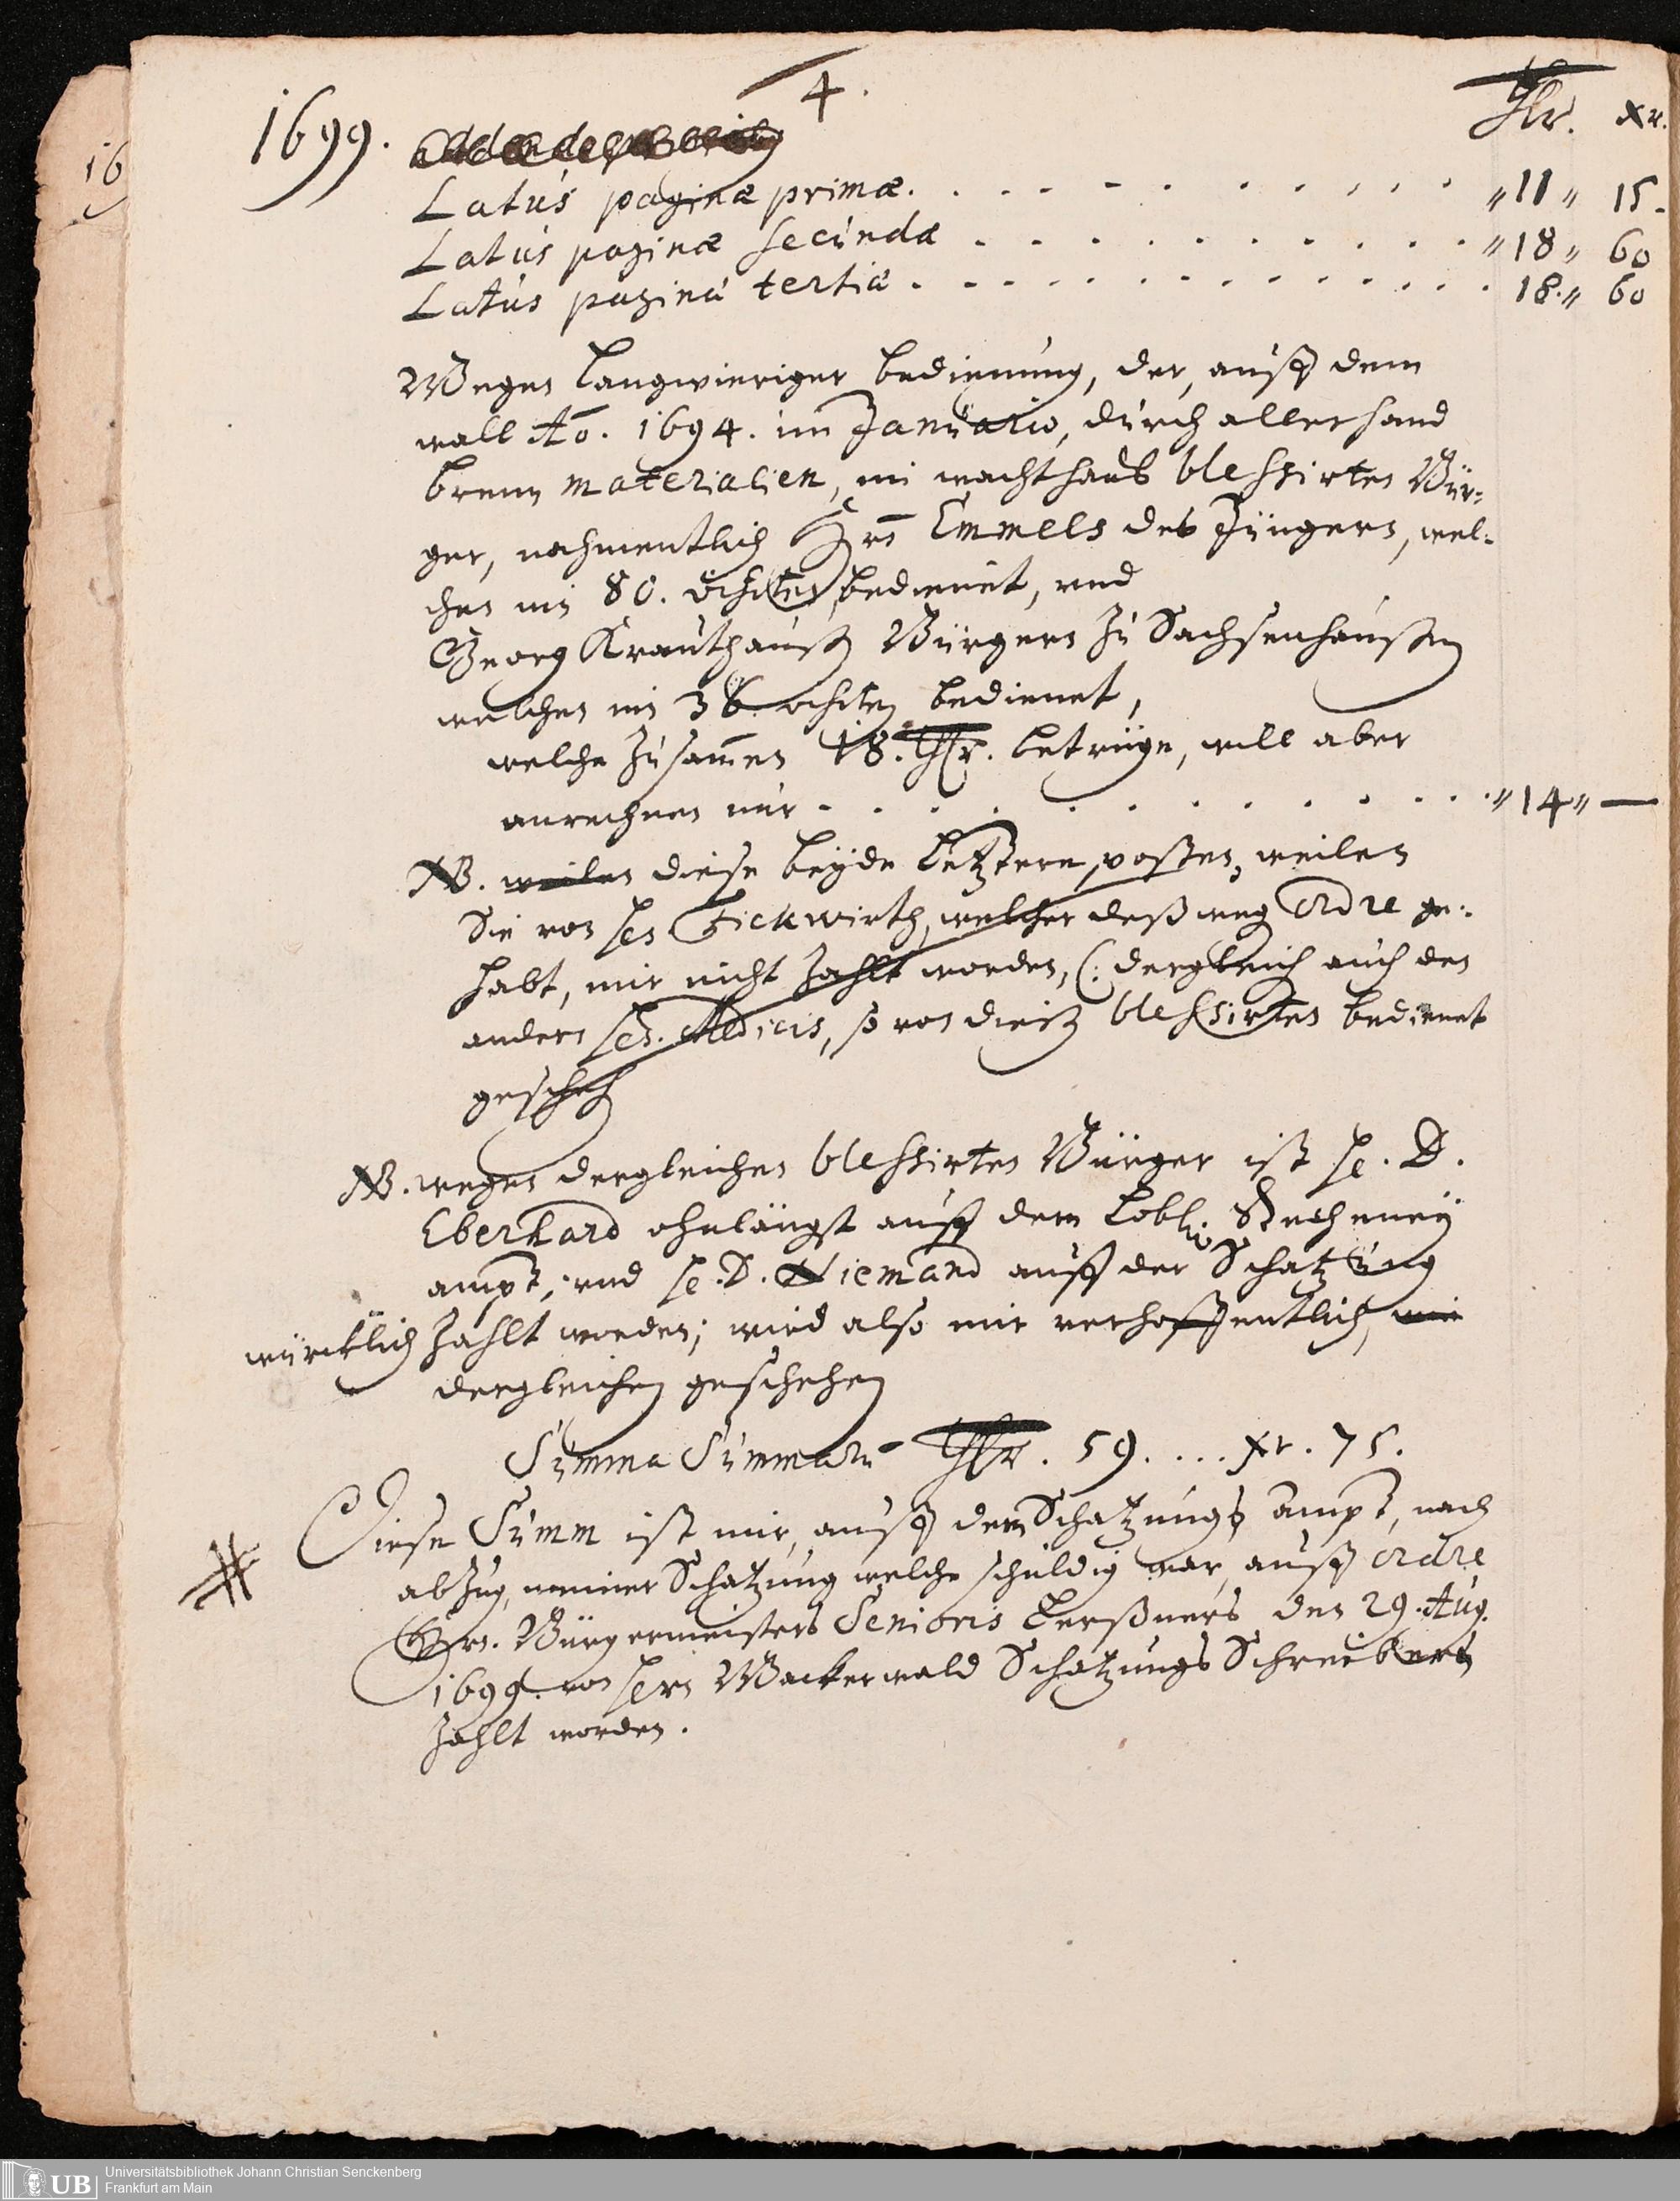 4.
Thlr. Xr.
1699.
Latus paginæ primæ. . . . . . . . . . . . " 11 " 15.
Latus paginæ secundæ . . . . . . . . . . " 18 " 60
Latus paginæ tertiæ . . . . . . . . . . . . 18. " 60
Wegen langwieriger bedienung, der, auff dem
wall Ao. 1694. im Januario, durch allerhand
brenn materialien, im wachthaus blessirten Bür-
ger, nahmentlich Hrn Emmels des Jüngern, wel-
chen in 80. visiten, bedienet, und
Georg Krauthauß Bürgern zu Sachsenhaußen
welchen in 36. visiten bedienet,
welche zusamen 18. Thlr. betrüge, will aber
anrechnen nur . . . . . . . . . . . . . " 14 " —
NB. weilen diese beyde letztere, posten, weilen
Sie von Hen Fickwirth, welcher deßweg ordre ge-
habt, mir nicht zahlt worden, (: dergleich auch den
andern Hen. Medicis, so von dieß blessirten bedienet
gescheh
NB. wegen dergleichen blessirten Bürger ist He. D.
Eberhard ohnlängst auff dem Löbl. Recheney
ampt, und He. D. Niemand auff der Schatzung
würcklich zahlt worden; wird also mir verhoffentlich, wie
dergleichen geschehen
Summa Summaru Thlr. 59. ... Xr. 75.
Diese Summ ist mir, auff dem Schatzungs ampt, nach
abzug, meiner Schatzung welche schuldig war, auff ordre
Hrn. Bürgermeisters Senioris Lerßners den 29. Aug.
1699. von Hern Wackerwald Schatzungs Schreibern
zahlt worden.
16
UB
Universitätsbibliothek Johann Christian Senckenberg
Frankfurt am Main